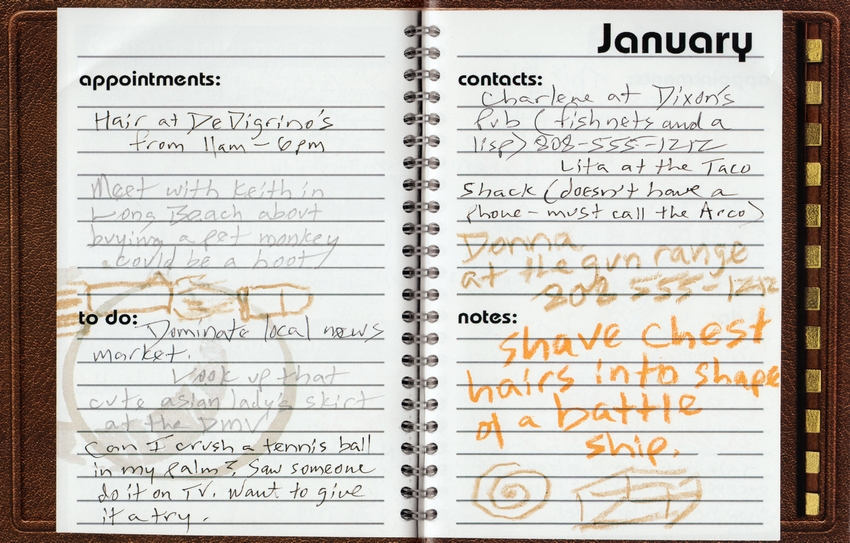 appointments:
Hair at DeDigrino's
from 11am - 6pm
Meet with Keith in
Long Beach about
buying a pet monkey
could be a hoot)
to do:
Dominate local news
market.
Look up that
cute asian lady's skirt
at the DMV
Can I crush a tennis ball
in my palm? Saw someone
do it on TV. Want to give
it a try.
January
contacts:
Charlene at Dixon's
Pub (fishnets and a
lisp) 202-555-1212
Lita at the Taco
Shack (doesn't have a
phone - must call the Arco)
Donna
at the gun range
202 555-1212
notes:
shave chest
hairs into shape
of a battle
ship.